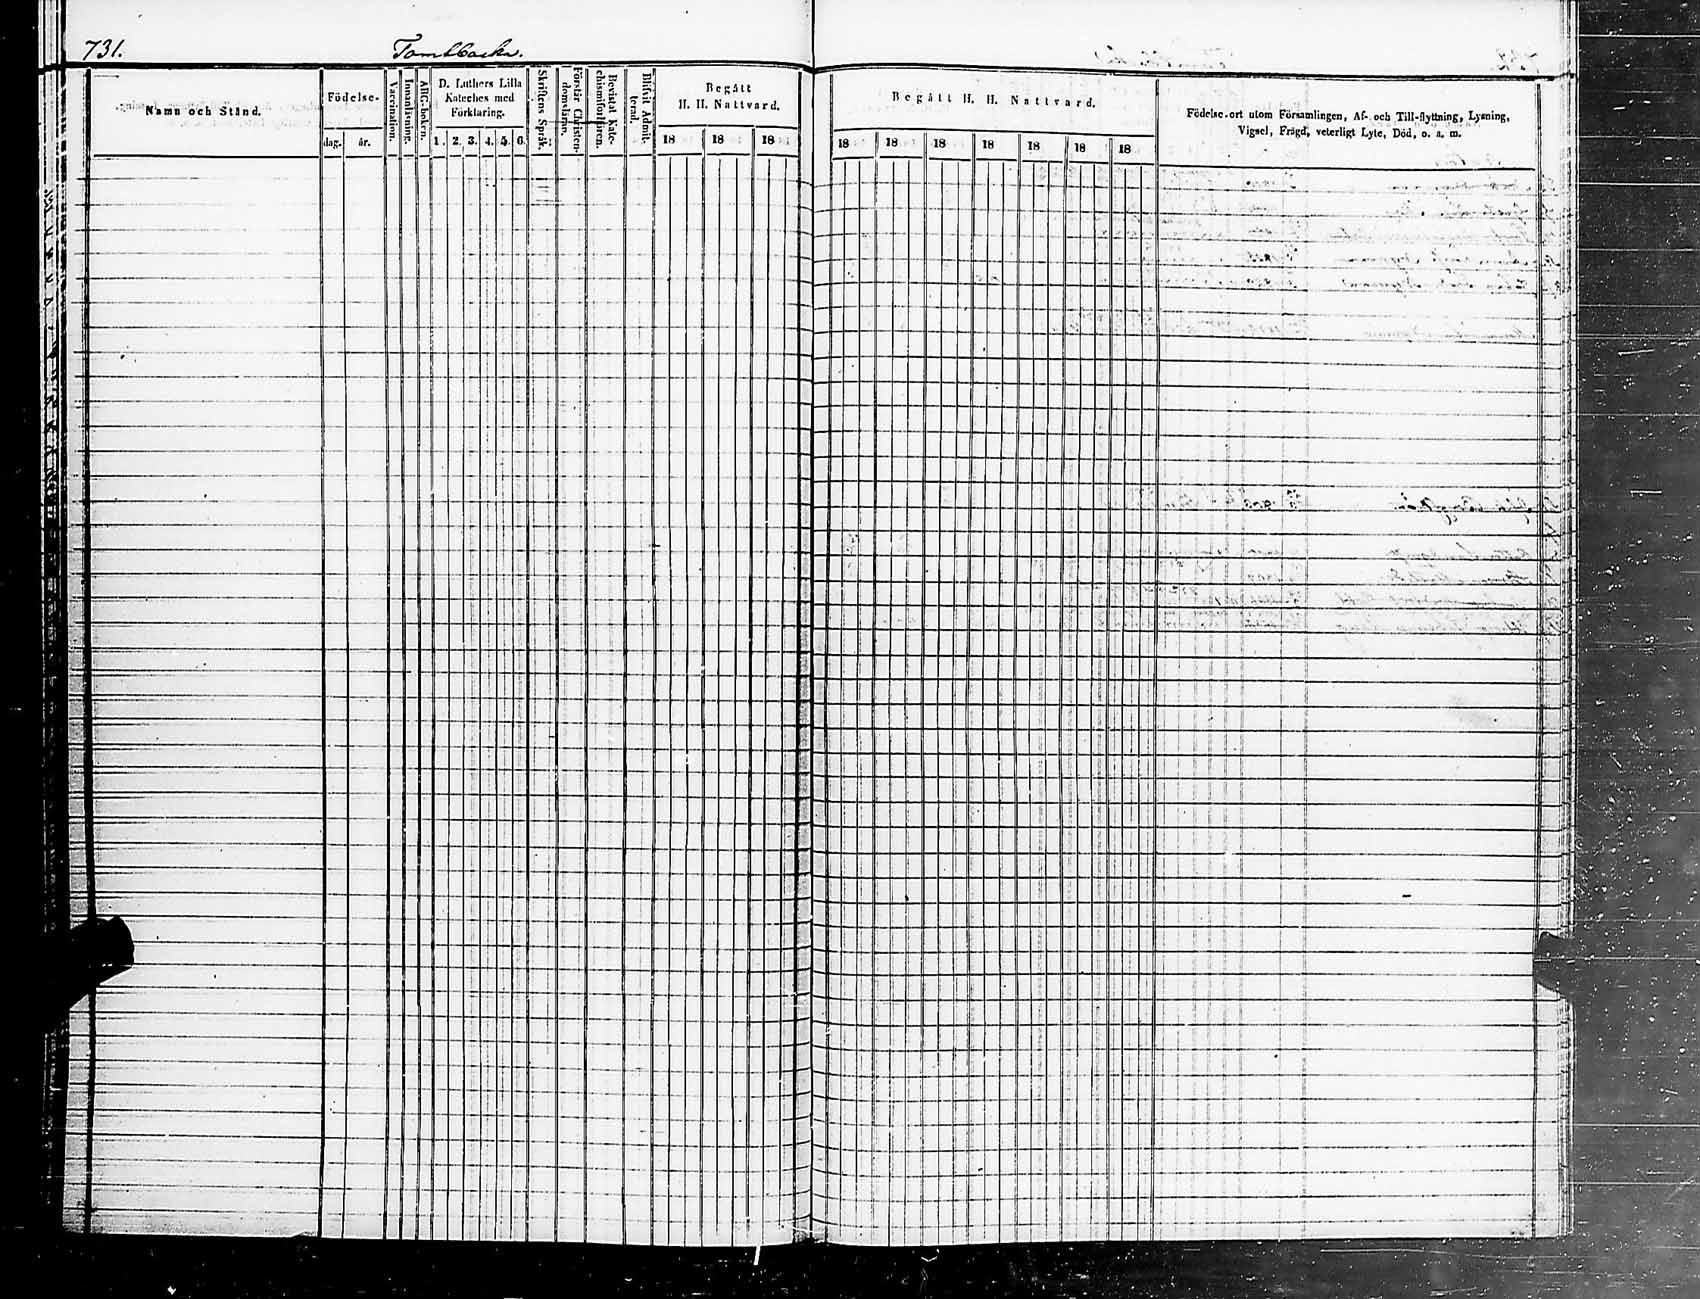 731.
Tombbacka.
Namn och Stånd.
Födelse-
dag. år.
Vaccination.
Innanläsning.
ABC-boken.
D. Luthers Lilla
Kateches med
Förklaring.
1. 2. 3. 4. 5. 6.
Skriftens Språk.
Förstår Christen-
domsläran.
Bevistat Kate-
chismiförhören.
Blifvit Admit-
terad.
Begått
H. H. Nattvard.
18 18 18
Begått H. H. Nattvard.
18 18 18 18 18 18 18
Födelse-ort utom Församlingen, Af- och Till-flyttning, Lysning,
Vigsel, Frägd, veterligt Lyte, Död, o. s. m.